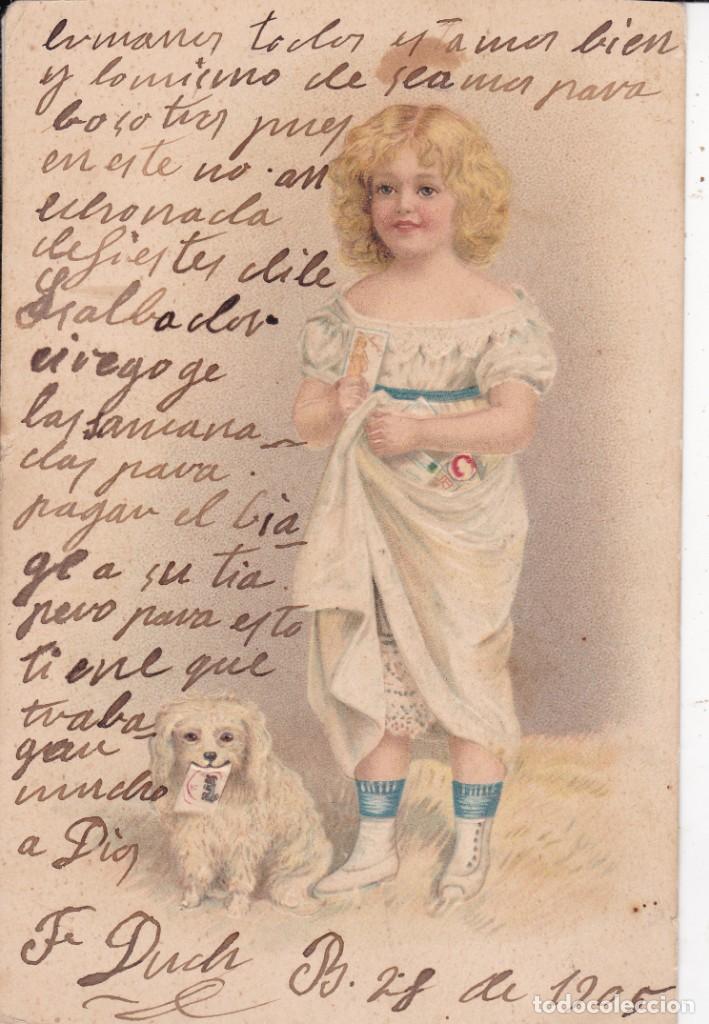 ermanos todos estamos bien
y lomismo de seamos para
bosotros pues
en este no an
echonada
defiestes dile
Salbador
que
las samana
das para
pagar el bia
ge a su tia
pero para esto
tiene que
traba
gar
mucho
a Dios
Fe Duch B. 28 de 1905
todocoleccion